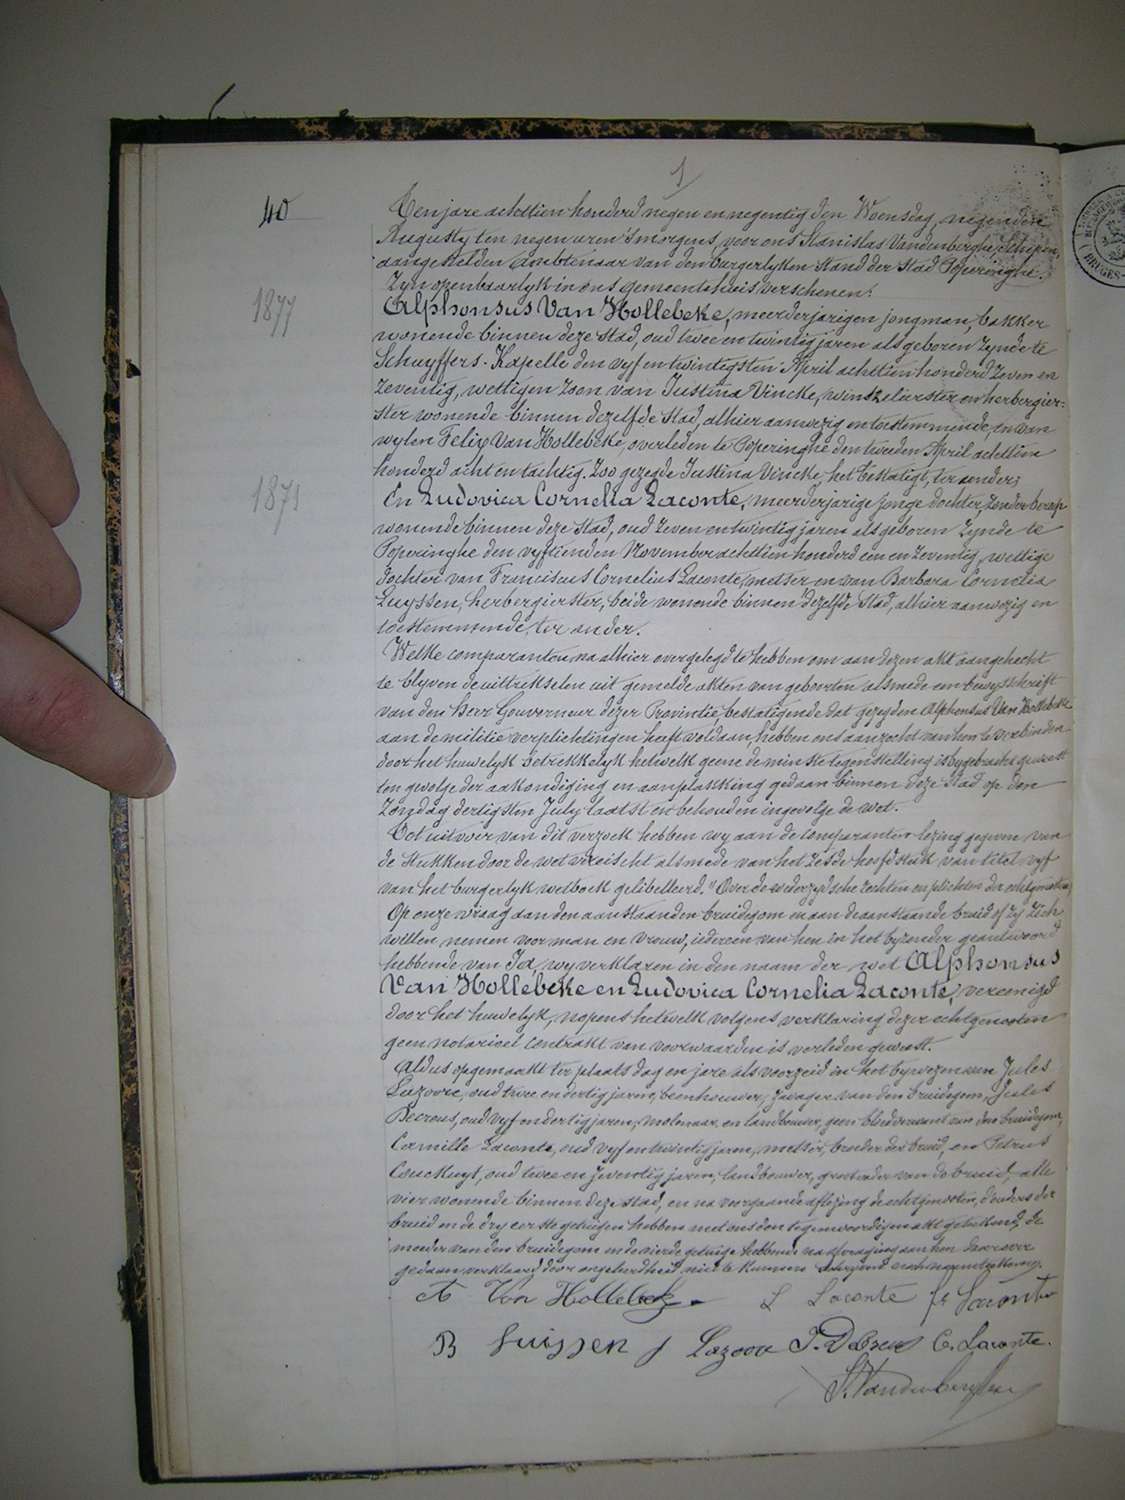 1
40
Ten jare achttien honderd negen en negentig den Woensdag, negenden
Augusty ten negen uren 's morgens, voor ons Stanislas Vandenberghe, Schepen,
aangestelden Ambtenaar van den burgerlyken Stand der Stad Poperinghe.
Zyn openbaarlyk in ons gemeentehuis verschenen:
1877
Alphonsus Van Hollebeke, meerderjarigen jongman, bakker
wonende binnen deze Stad, oud twee en twintig jaren als geboren Zynde te
Schuyffers-Kapelle den vyf en twintigsten April achttien honderd Zeven en
Zeventig, wettigen Zoon van Justina Vincke, winkelierster en herbergier-
ster wonende binnen dezelfde Stad, alhier aanwezig en toestemmende, en van
wylen Felix Van Hollebeke, overleden te Poperinghe den tweeden April achttien
honderd acht en tachtig. Zoo gezegde Justina Vincke, het bestatigt, ter eender;
1871
En Ludovica Cornelia Laconte, meerderjarige jonge dochter, Zonder beroep
wonende binnen deze Stad, oud Zeven en twintig jaren als geboren Zynde te
Poperinghe den vyftienden November achttien honderd een en Zeventig, wettige
dochter van Franciscus Cornelius Laconte, metser en van Barbara Cornelia
Luyssen, herbergierster, beide wonende binnen dezelfde Stad, alhier aanwezig en
toestemmende, ter ander.
Welke comparanten, na alhier overgelegd te hebben om aan dezen akt aangehecht
te blyven de uittrekselen uit gemelde akten van geboorten alsmede een bewysschrift
van den Heer Gouverneur dezer Provintie, bestatigende dat gezyden Alphonsus Van Hollebeke
aan de militie verplichtingen heeft voldaan, hebben ons aanzocht van hen te verbinden
door het huwelyk betrekkelyk hetwelk geene de minste tegenstelling is bygebracht geweest
ten gevolge der aakondiging en aanplakking gedaan binnen deze Stad op den
Zondag dertigsten July laatst en behouden ingevolge de wet.
Tot uitvoer van dit verzoek hebben wy aan de comparanten lezing gegeven van
de Stukken door de wet vereischt alsmede van het Zesde hoofdstuk van titel vyf
van het burgerlyk wetboek gelibelleerd: "Over de wederzydsche rechten en plichten der echtgenoten,
Op onze vraag aan den aanstaanden bruidegom en aan de aanstaande bruid of Zy Zich
willen nemen voor man en vrouw, iedereen van hen in het byzonder geantwoord
hebbende van Ja, wy verklaren in den naam der wet Alphonsus
Van Hollebeke en Ludovica Cornelia Laconte, vereenigd
door het huwelyk, nopens hetwelk volgens verklaring dezer echtgenooten
geen notarieel contrakt van voorwaarden is verleden geweest.
Aldus opgemaakt ter plaats dag en jare als voorzeid in het bywezen van Jules
Lazoore, oud twee en dertig jaren, beenhouwer, zwager van den bruidegom, Jules
oud vyf en dertig jaren, molenaar en landbouwer, geen bloedverwant van den bruidegom,
Camille Laconte, oud vyf en twintig jaren, metser, broeder der bruid, en Petrus
Couckuyt, oud twee en zeventig jaren, landbouwer, grootvader van de bruid, alle
vier wonende binnen deze stad, en na voorgaande aflezing de echtgenooten, d'ouders der
bruid en de dry eerste getuigen hebben met ons den tegenwoordigen akt geteekend, de
moeder van den bruidegom en de vierde getuige hebbende na afvraging aan hen daarover
gedaan verklaard door ongeleerdheid niet te kunnen schryven noch naamteekenen.
A Van Hollebeke L Laconte fr Laconte
B Luijssen J Lazoore C. Laconte.
S. Vandenberghe